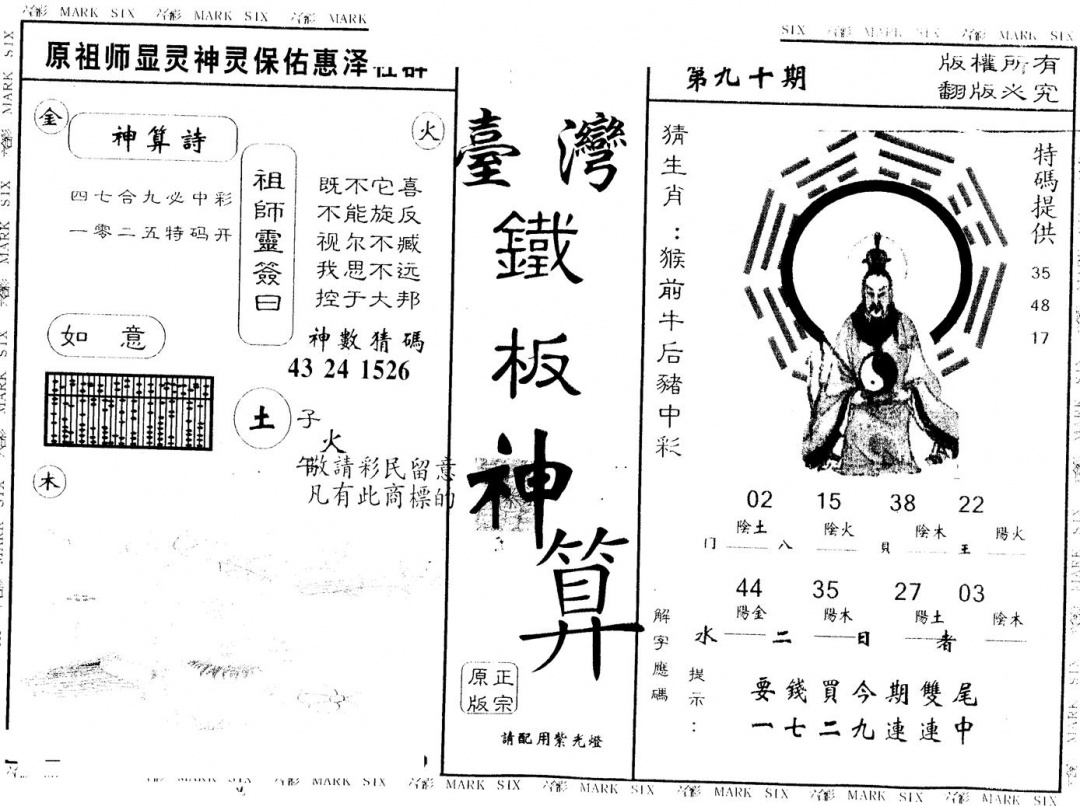 六彩 MARK SIX 六彩 MARK SIX 六彩 MARK
SIX 六彩 MARK SIX 六彩 MARK SIX
原祖师显灵神灵保佑惠泽社群
第九十期
版權所有
翻版必究
金
神算詩
火
四七合九必中彩
一零二五特码开
祖師靈簽曰
既不它喜
不能旋反
视尔不臧
我思不远
控于大邦
神數猜碼
43 24 1526
如意
土
子
火
午
木
敬請彩民留意
凡有此商標的
臺灣
鐵
板
神
算
正宗
原版
請配用紫光燈
猜生肖：猴前牛后豬中彩
特碼提供
35
48
17
02 15 38 22
陰土 陰火 陰木 陽火
门 八 貝 王
44 35 27 03
陽金 陽木 陽土 陰木
水 二 日 者
解字應碼
提示：
要錢買今期雙尾
一七二九連連中
六彩 MARK SIX 六彩 MARK SIX 六彩 MARK SIX 六彩 MARK SIX 六彩 MARK SIX